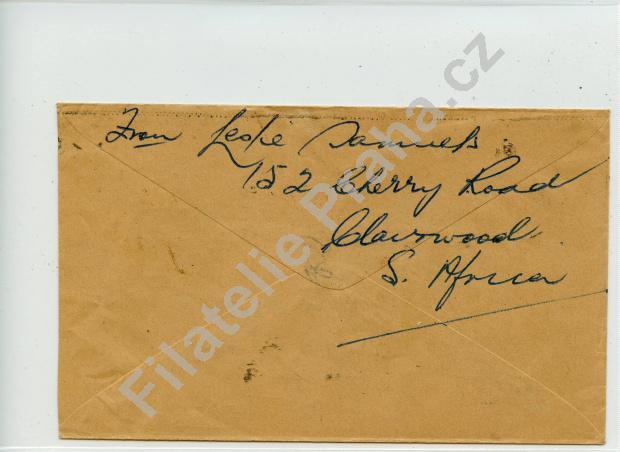 From Leslie Samuels
152 Cherry Road
Clairwood
S. Africa
Filatelie Praha.cz